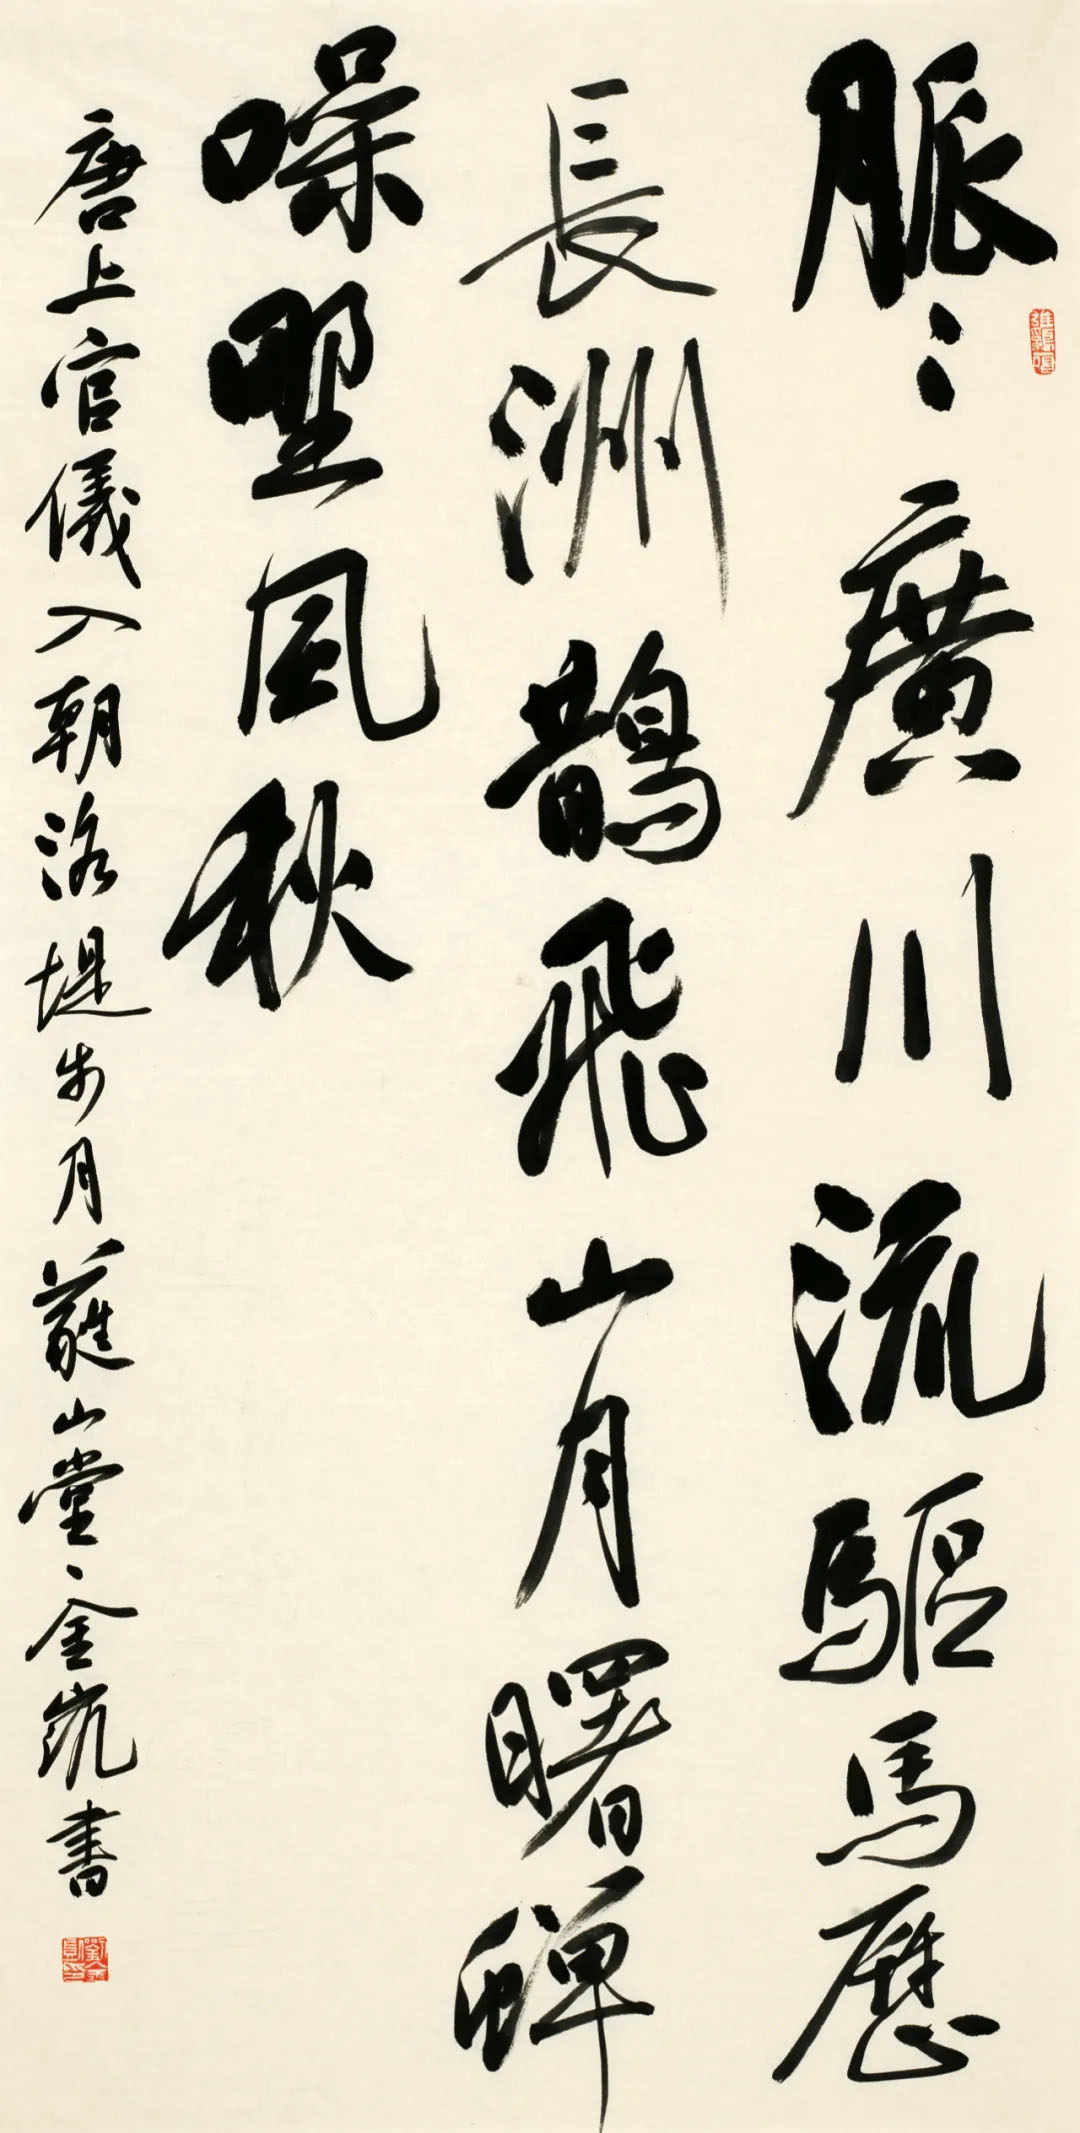 脈〻廣川流驅馬歷
長洲鵲飛山月曙蟬
噪野風秋
唐上官儀入朝洛堤步月蕤山堂金凱書